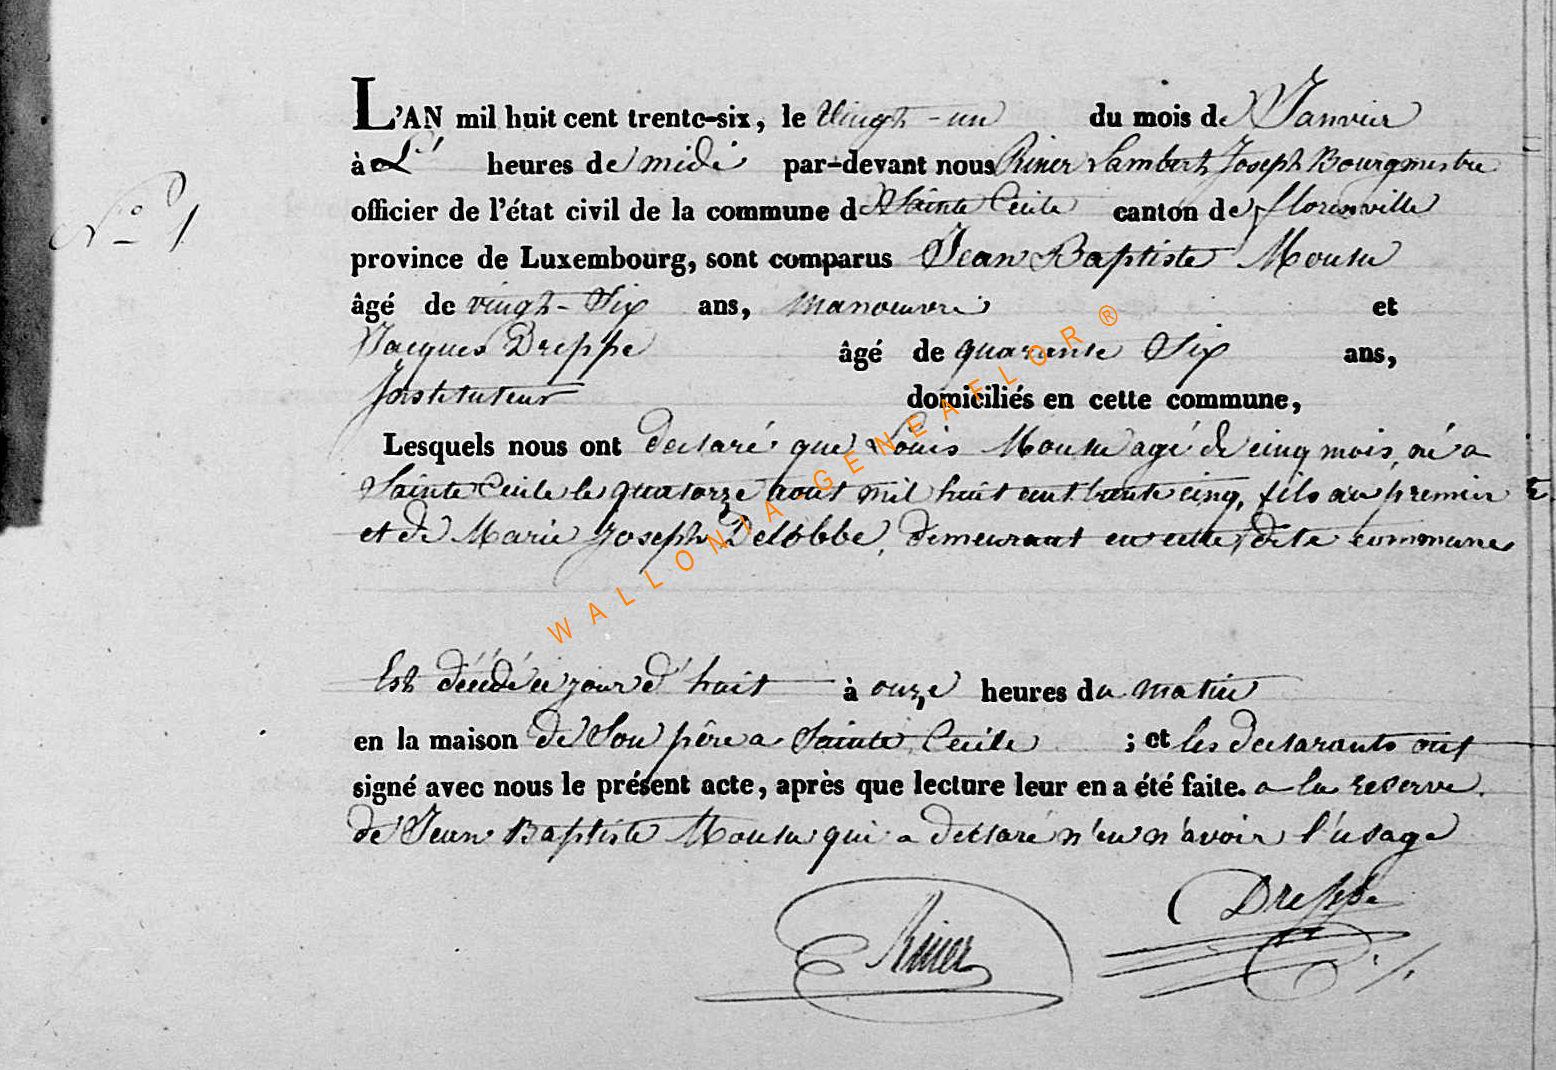 L'AN mil huit cent trente-six, le Vingt-un du mois de Janvier
à L' heures de midi par-devant nous Riner Lambert Joseph Bourgmestre
N° 1
officier de l'état civil de la commune de Sainte Cecile canton de florenville
province de Luxembourg, sont comparus Jean Baptiste Mousu
âgé de vingt-Six ans, manoeuvre et
Jacques Dreppe âgé de quarante Six ans,
Instituteur domiciliés en cette commune,
Lesquels nous ont declaré que Louis Mousu agé de cinq mois, né a
Sainte Cecile le quatorze aout mil huit cent trente cinq, fils au premier
et de Marie Joseph Delobbe, demeurant en cette dite commune
WALLONIA-GENEAFLOR®
Est décédé ce jour d'huit à onze heures du matin
en la maison de Son père a Sainte Cecile ; et les declarants ont
signé avec nous le présent acte, après que lecture leur en a été faite. a la reserve
de Jean Baptiste Mousu qui a declaré n'en n'avoir l'usage
Dreppe
Riner